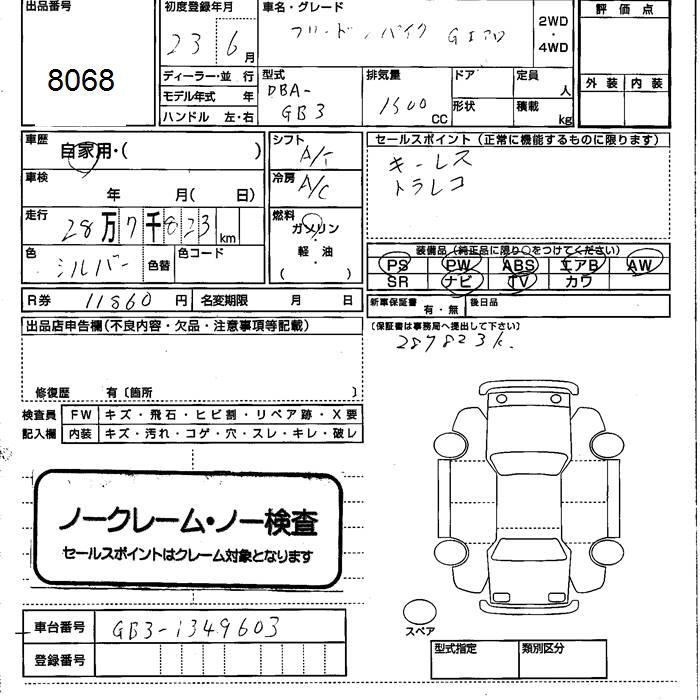 出品番号
8068
初度登録年月
23 6月
車名・グレード
フリード
2WD
・
4WD
評価点
外装 内装
ディーラー・並 行
モデル年式 年
ハンドル 左・右
型式
DBA-
GB3
排気量
1500
CC
ドア
形状
定員
人
積載
kg
車歴
自家用・( )
車検
年 月( 日)
走行
28万7千823km
色
シルバー
色替
色コード
シフト
A/T
冷房
A/C
燃料
ガソリン
・
軽・油
( )
セールスポイント (正常に機能するものに限ります)
キーレス
トラレコ
装備品 (純正品に限り○をつけてください)
PS PW ABS エアB AW
SR ナビ TV カワ
R券 11860円 名変期限 月 日
新車保証書
有・無
後日品
(保証書は事務局へ提出して下さい)
287823k.
出品店申告欄(不良内容・欠品・注意事項等記載)
修復歴 有〔箇所 〕
検査員
記入欄
FW キズ・飛石・ヒビ割・リペア跡・X要
内装 キズ・汚れ・コゲ・穴・スレ・キレ・破レ
ノークレーム・ノー検査
セールスポイントはクレーム対象となります
スペア
車台番号 GB3-1349603
登録番号
型式指定 類別区分